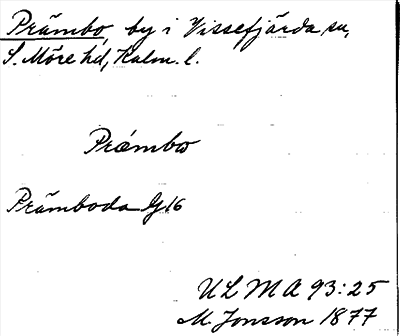 Pråmbo, by i Vissefjärda sn,
S. Möre hd, Kalm. l.
Præmbω
Pråmboda G16
ULMA 93:25
M. Jonsson 1877